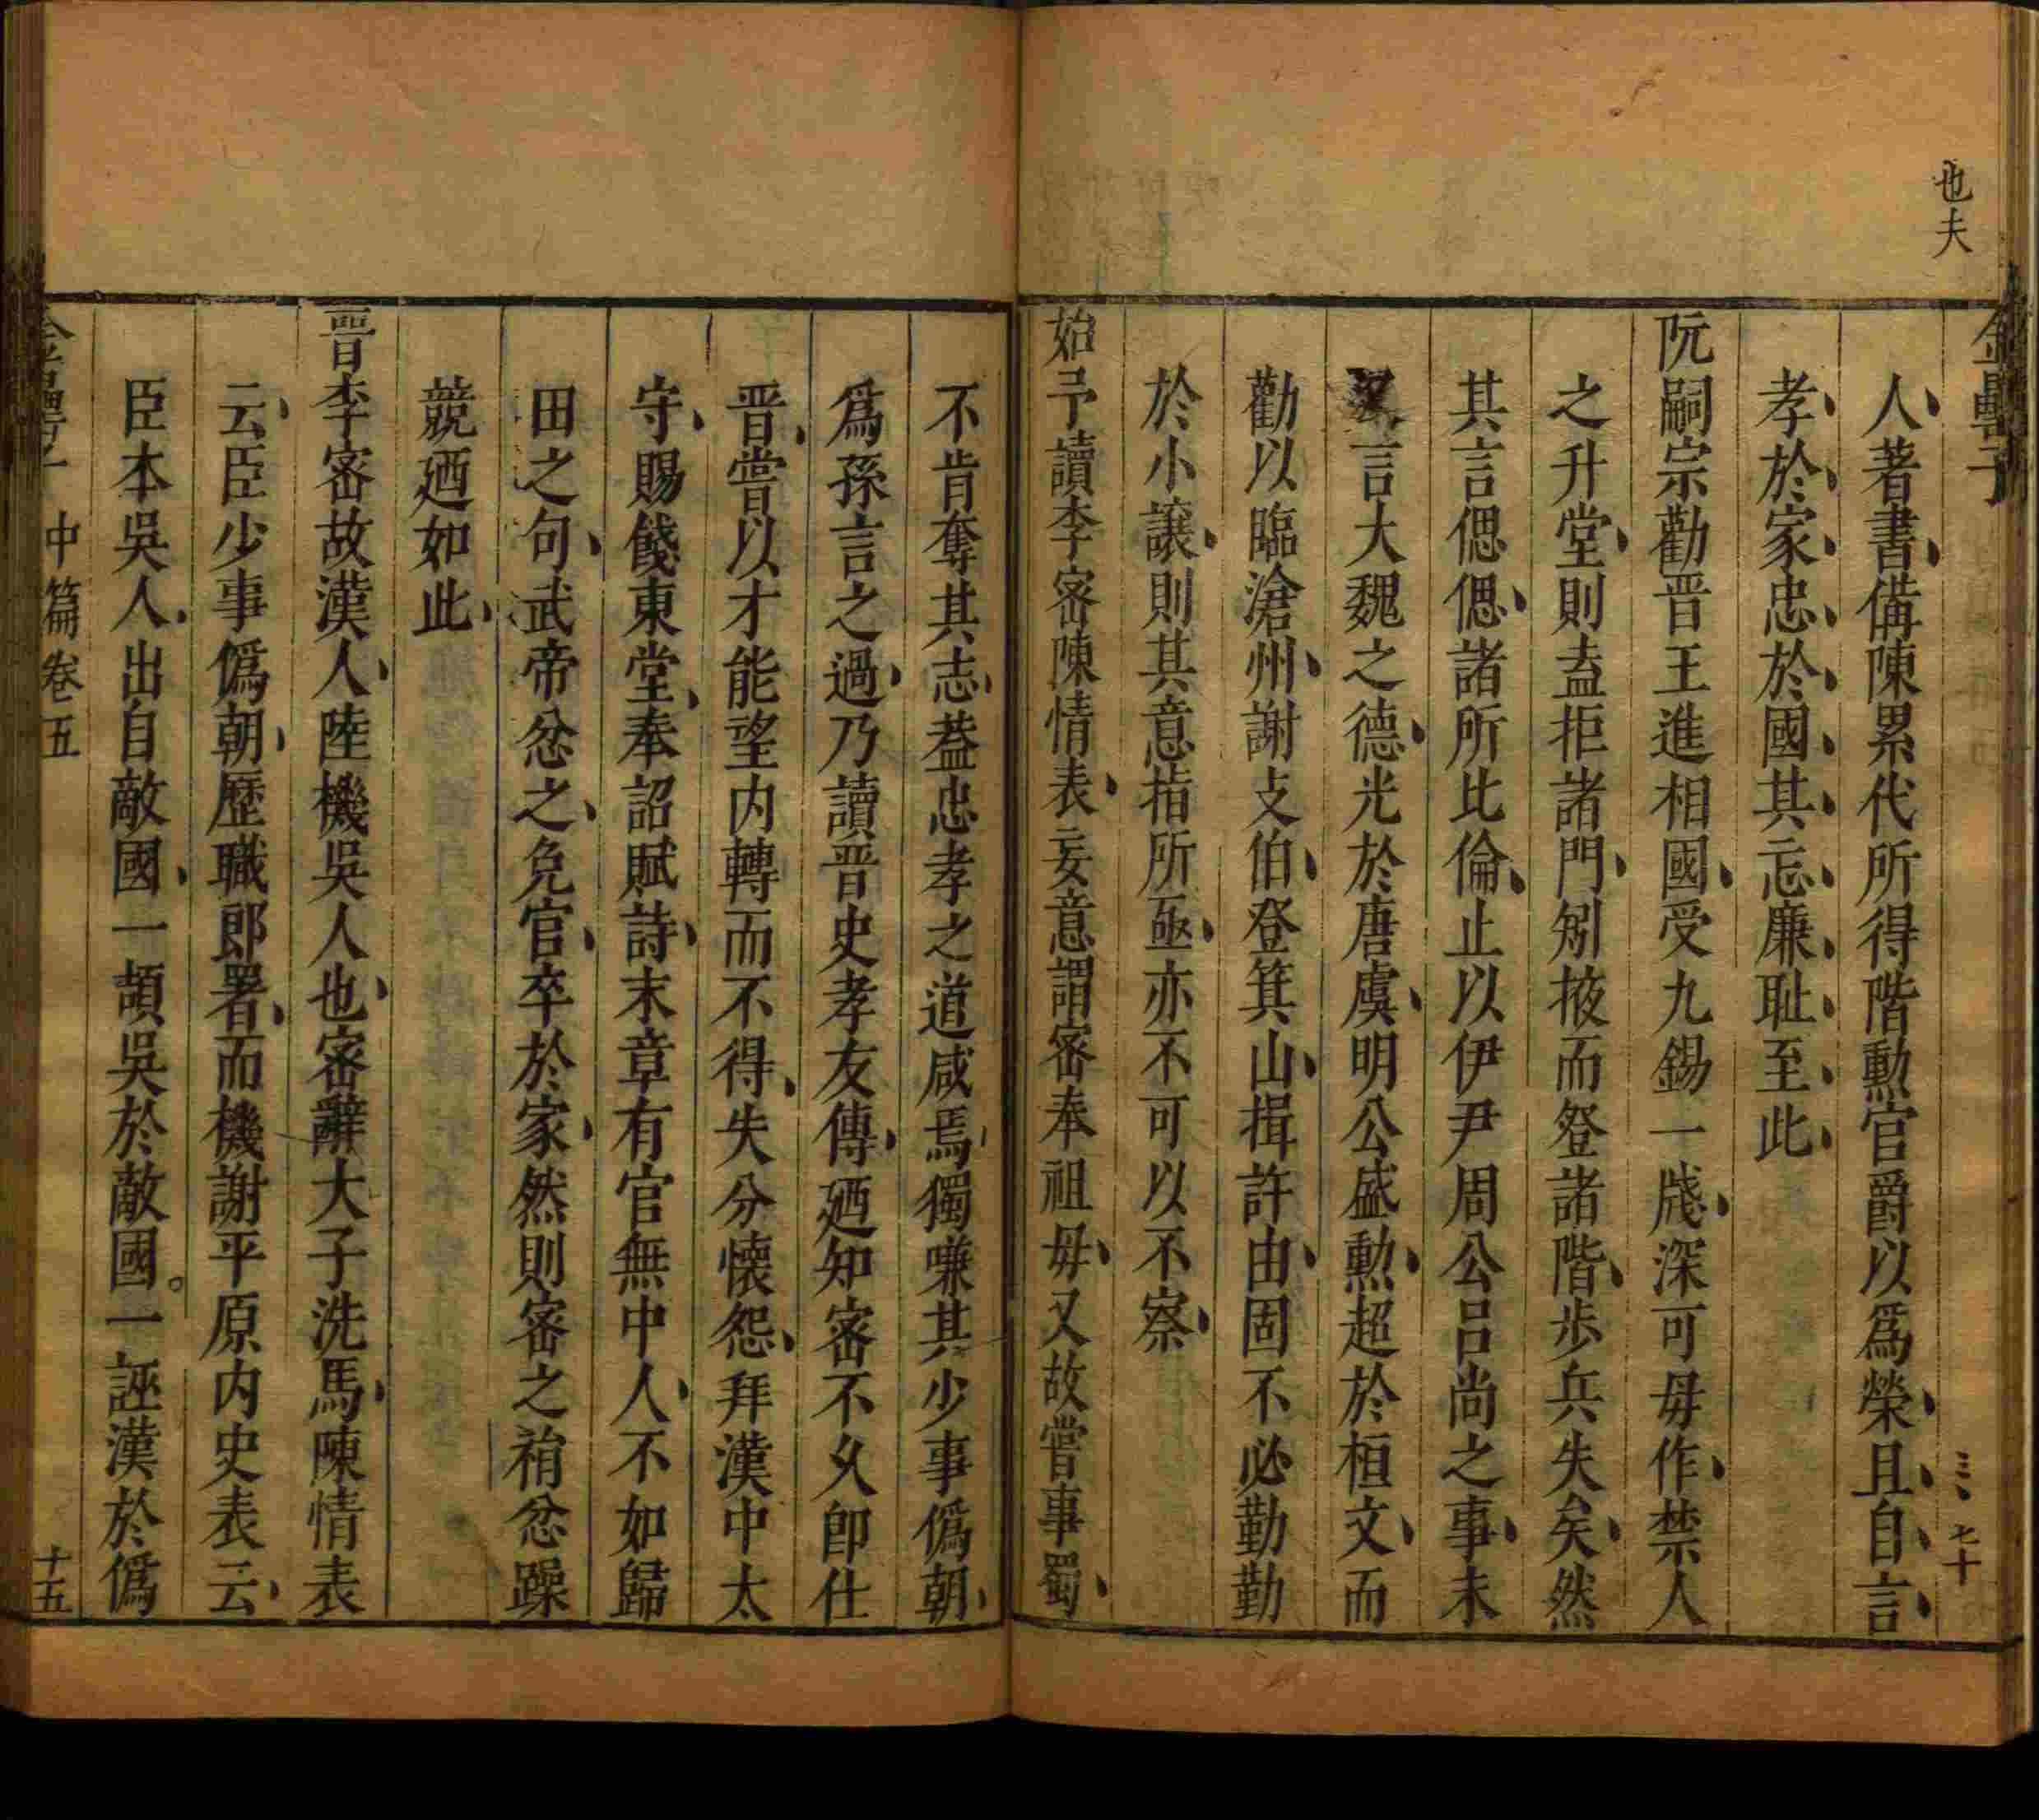 也夫
金罍子
三、七十
人著書備陳累代所得階勳官爵以爲榮且自言
孝於家忠於國其忘廉恥至此
阮嗣宗勸晋王進相國受九錫一牋深可毋作禁人
之升堂則盍拒諸門矧掖而登諸階歩兵失矣然
其言偲偲諸所比倫止以伊尹周公呂尚之事未
言大魏之德光於唐虞明公盛勳超於桓文而
勸以臨滄州謝支伯登箕山揖許由固不必勤勤
於小讓則其意指所亟亦不可以不察
始予讀李宻陳情表妄意謂宻奉祖毋又故嘗事蜀
不肯奪其志葢忠孝之道咸焉獨嗛其少事僞朝
爲孫言之過乃讀晋史孝友傳廼知宻不乆即仕
晋嘗以才能望内轉而不得失分懐怨拜漢中太
守賜餞東堂奉詔賦詩末章有官無中人不如歸
田之句武帝忿之免官卒於家然則宻之褊忿躁
競廼如此
晋李宻故漢人陸機吳人也宻辭大子洗馬陳情表
云臣少事僞朝歴職郎署而機謝平原内史表云
臣本吳人出自敵國一頡吳於敵國一誣漢於僞
中篇卷五
十五